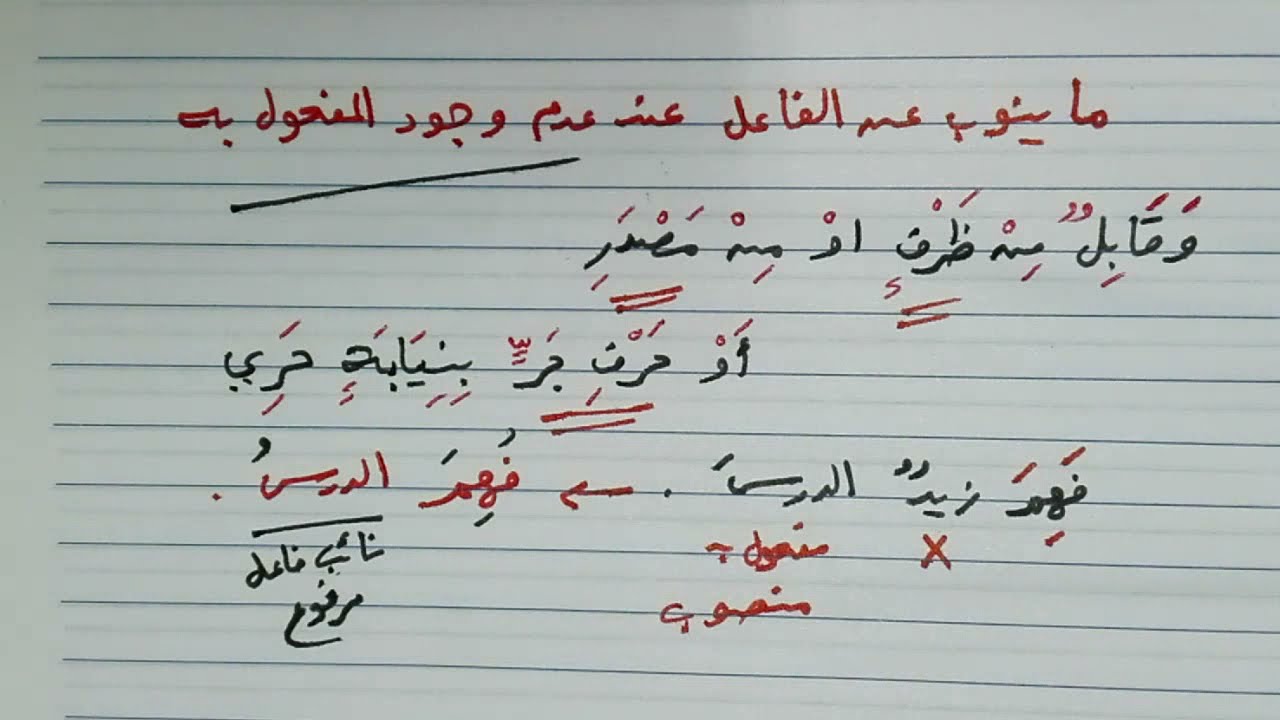 ما ينوب عن الفاعل عند عدم وجود المفعول به
وَقَابِلٌ مِنْ ظَرْفٍ اوْ مِنْ مَصْدَرِ
أَوْ حَرْفِ جَرٍّ بِنِيَابَةٍ حَرِي
فَهِمَ زيدٌ الدرسَ . فُهِمَ الدرسُ .
X مفعول به نائب فاعل
منصوب مرفوع